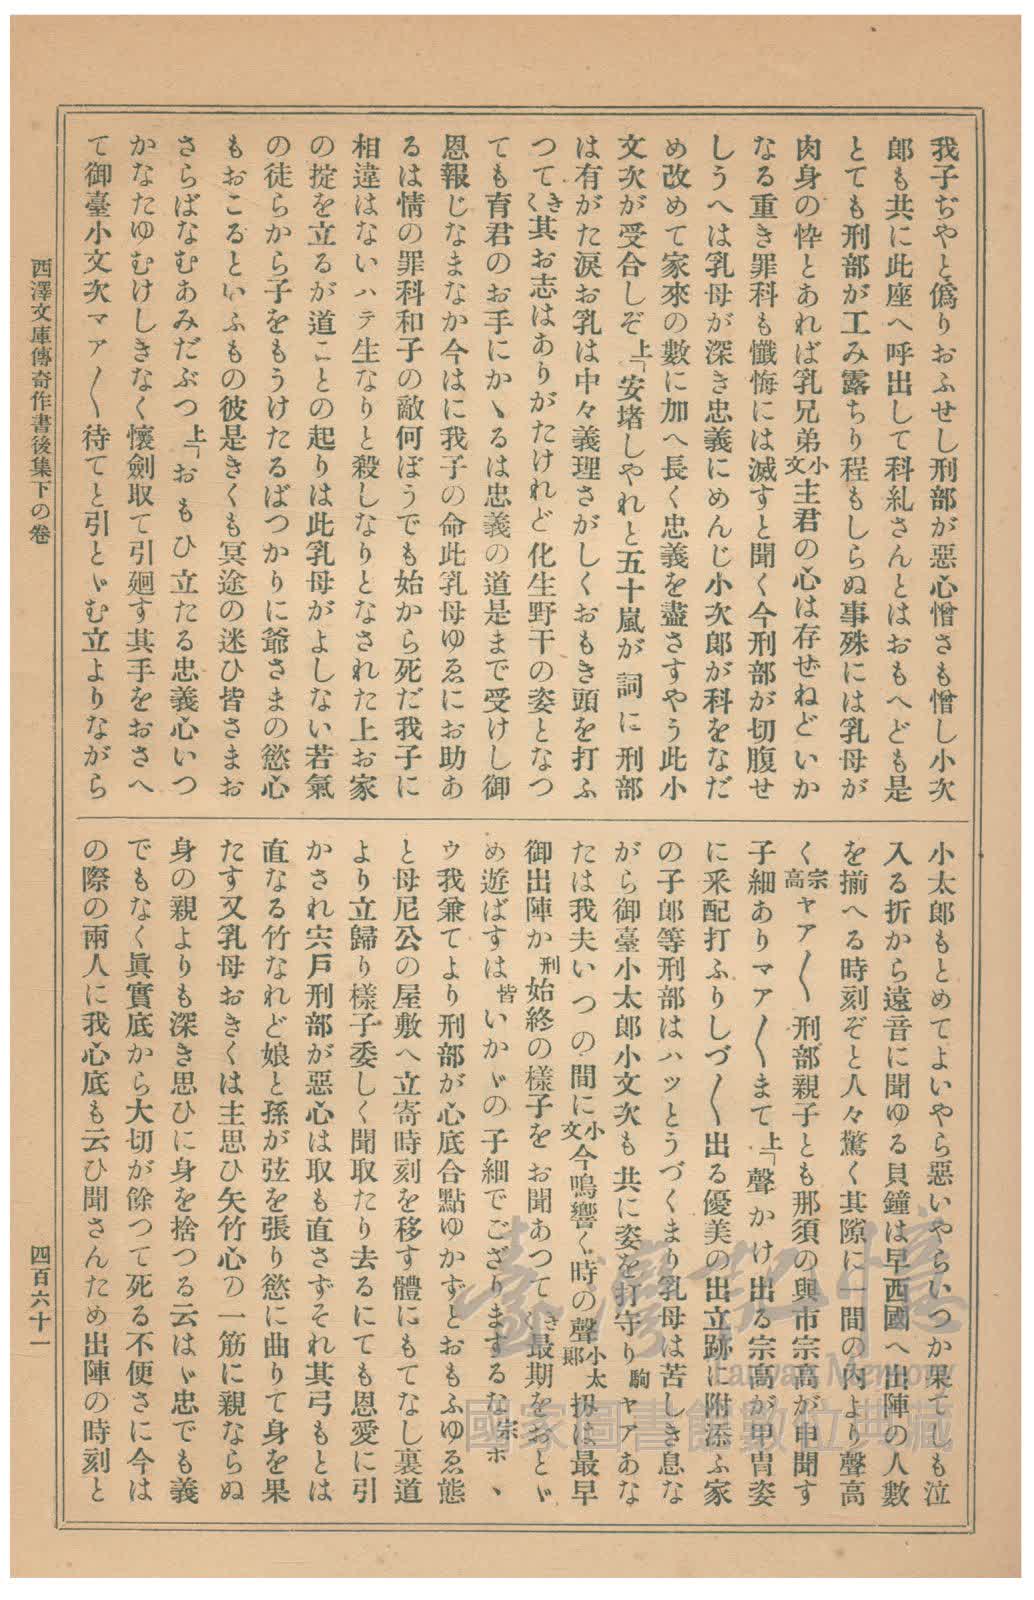 我子ぢやと僞りおふせし刑部が惡心憎さも憎し小次
郎も共に此座へ呼出して科糺さんとはおもへども是
とても刑部が工み露ちり程もしらぬ事殊には乳母が
肉身の悴とあれば乳兄弟小文主君の心は存ぜねどいか
なる重き罪科も懺悔には滅すと聞く今刑部が切腹せ
しうへは乳母が深き忠義にめんじ小次郎が科をなだ
め改めて家來の數に加へ長く忠義を盡さすやう此小
文次が受合しぞ上「安堵しやれと五十嵐が詞に刑部
は有がた涙お乳は中々義理さがしくおもき頭を打ふ
つてきく其お志はありがたけれど化生野干の姿となつ
ても育君のお手にかゝるは忠義の道是まで受けし御
恩報じなまなか今はに我子の命此乳母ゆゑにお助あ
るは情の罪科和子の敵何ぼうでも始から死だ我子に
相違はないハテ生なりと殺しなりとなされた上お家
の掟を立るが道ことの起りは此乳母がよしない若氣
の徒らから子をもうけたるばつかりに爺さまの慾心
もおこるといふもの彼是きくも冥途の迷ひ皆さまお
さらばなむあみだぶつ上「おもひ立たる忠義心いつ
かなたゆむけしきなく懷劍取て引廻す其手をおさへ
て御臺小文次マア〳〵待てと引とゞむ立よりながら
小太郎もとめてよいやら惡いやらいつか果てしも泣
入る折から遠音に聞ゆる貝鐘は早西國へ出陣の人數
を揃へる時刻ぞと人々驚く其隙に一間の内より聲高
く宗高ヤア〳〵刑部親子とも那須の與市宗高が申聞す
子細ありマア〳〵まて上「聲かけ出る宗高が甲冑姿
に釆配打ふりしづ〳〵出る優美の出立跡に附添ふ家
の子郎等刑部はハッとうづくまり乳母は苦しき息な
がら御臺小太郎小文次も共に姿を打守り駒ヤアあな
たは我夫いつの間に小文今鳴響く時の聲小太郎扨は最早
御出陣か刑始終の樣子をお聞あつてきく最期をおとゞ
め遊ばすは皆いかゞの子細でござりまするな宗ホヽ
ウ我兼てより刑部が心底合點ゆかずとおもふゆゑ態
と母尼公の屋敷へ立寄時刻を移す體にもてなし裏道
より立歸り樣子委しく聞取たり去るにても恩愛に引
かされ宍戸刑部が惡心は取も直さずそれ其弓もとは
直なる竹なれど娘と孫が弦を張り慾に曲りて身を果
たす又乳母おきくは主思ひ矢竹心の一筋に親ならぬ
身の親よりも深き思ひに身を捨つる云はゞ忠でも義
でもなく眞實底から大切が餘つて死る不便さに今は
の際の兩人に我心底も云ひ聞さんため出陣の時刻と
西澤文庫傳奇作書後集下の卷
四百六十一
臺灣記憶
Taiwan Memory
國家圖書館數位典藏